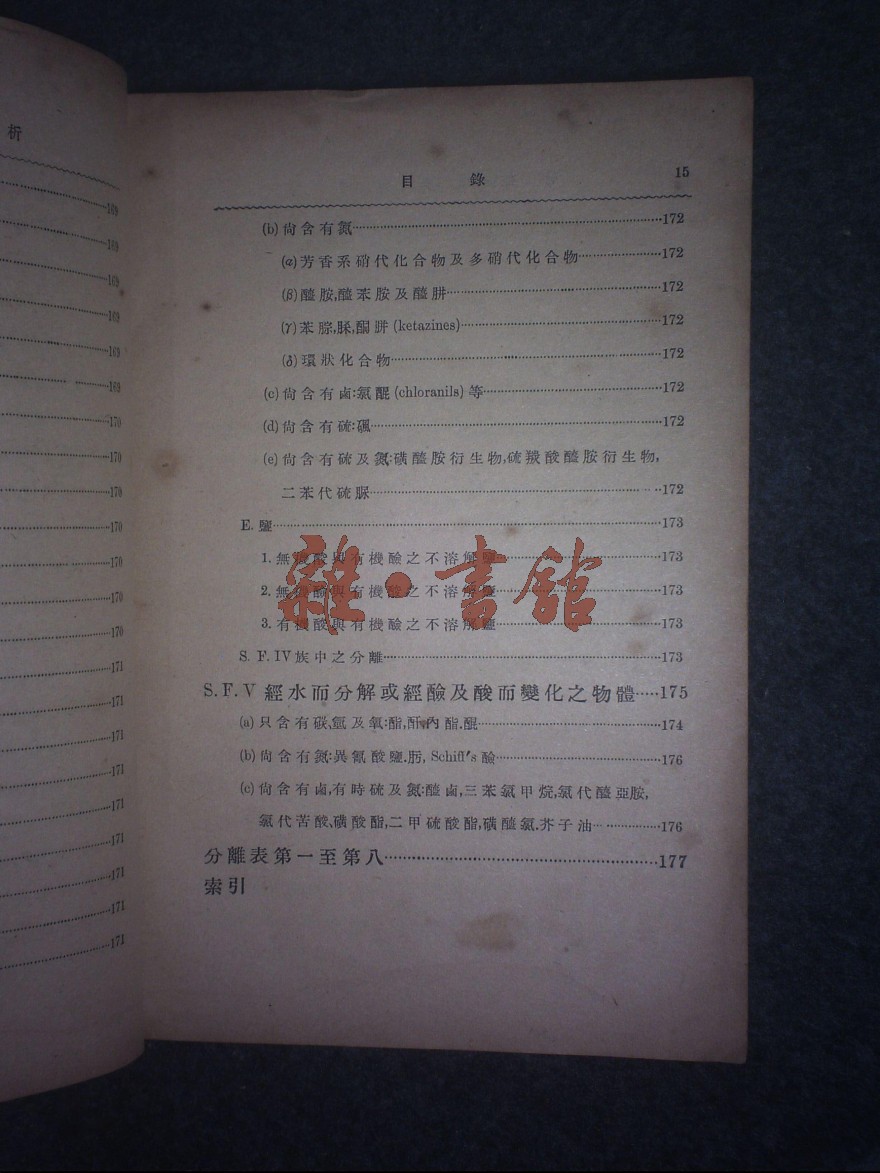 析
169
169
169
169
169
169
170
170
170
170
170
170
170
171
171
171
171
171
171
171
171
目 錄 15
(b) 尙含有氮 172
(α) 芳香系硝代化合物及多硝代化合物 172
(β) 醯胺,醯苯胺及醯肼 172
(γ) 苯腙,脎,酮肼 (ketazines) 172
(δ) 環狀化合物 172
(c) 尙含有鹵:氯醌 (chloranils) 等 172
(d) 尙含有硫:碸 172
(e) 尙含有硫及氮:磺醯胺衍生物,硫羰酸醯胺衍生物,
二苯代硫脲 172
E. 鹽 173
1. 無機酸與有機鹼之不溶解鹽 173
2. 無機鹼與有機酸之不溶解鹽 173
3. 有機酸與有機鹼之不溶解鹽 173
S. F. IV 族中之分離 173
S. F. V 經水而分解或經鹼及酸而變化之物體 175
(a) 只含有碳,氫及氧:酯,酐,內酯,醌 174
(b) 尙含有氮:異氰酸鹽,肟, Schiff's 鹼 176
(c) 尙含有鹵,有時硫及氮:醯鹵,三苯氯甲烷,氯代醯亞胺,
氯代苦酸,磺酸酯,二甲硫酸酯,磺醯氯,芥子油 176
分離表第一至第八 177
索引
雜·書館